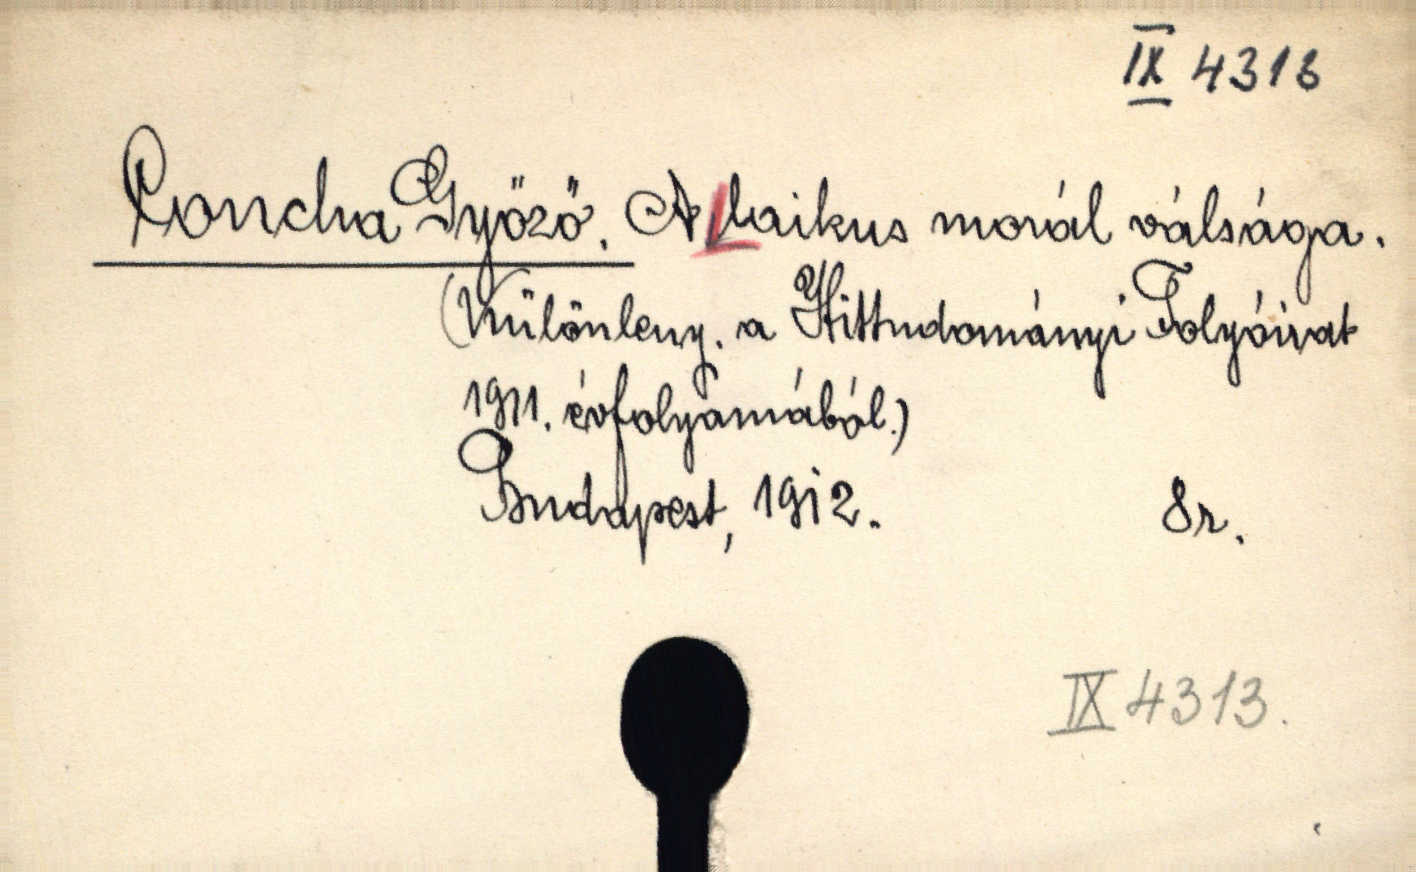 IX 4313
Concha Győző. A laikus morál válsága.
(Különleny. a Hittudományi Folyóirat
1911. évfolyamából.)
Budapest, 1912. 8r.
IX 4313.